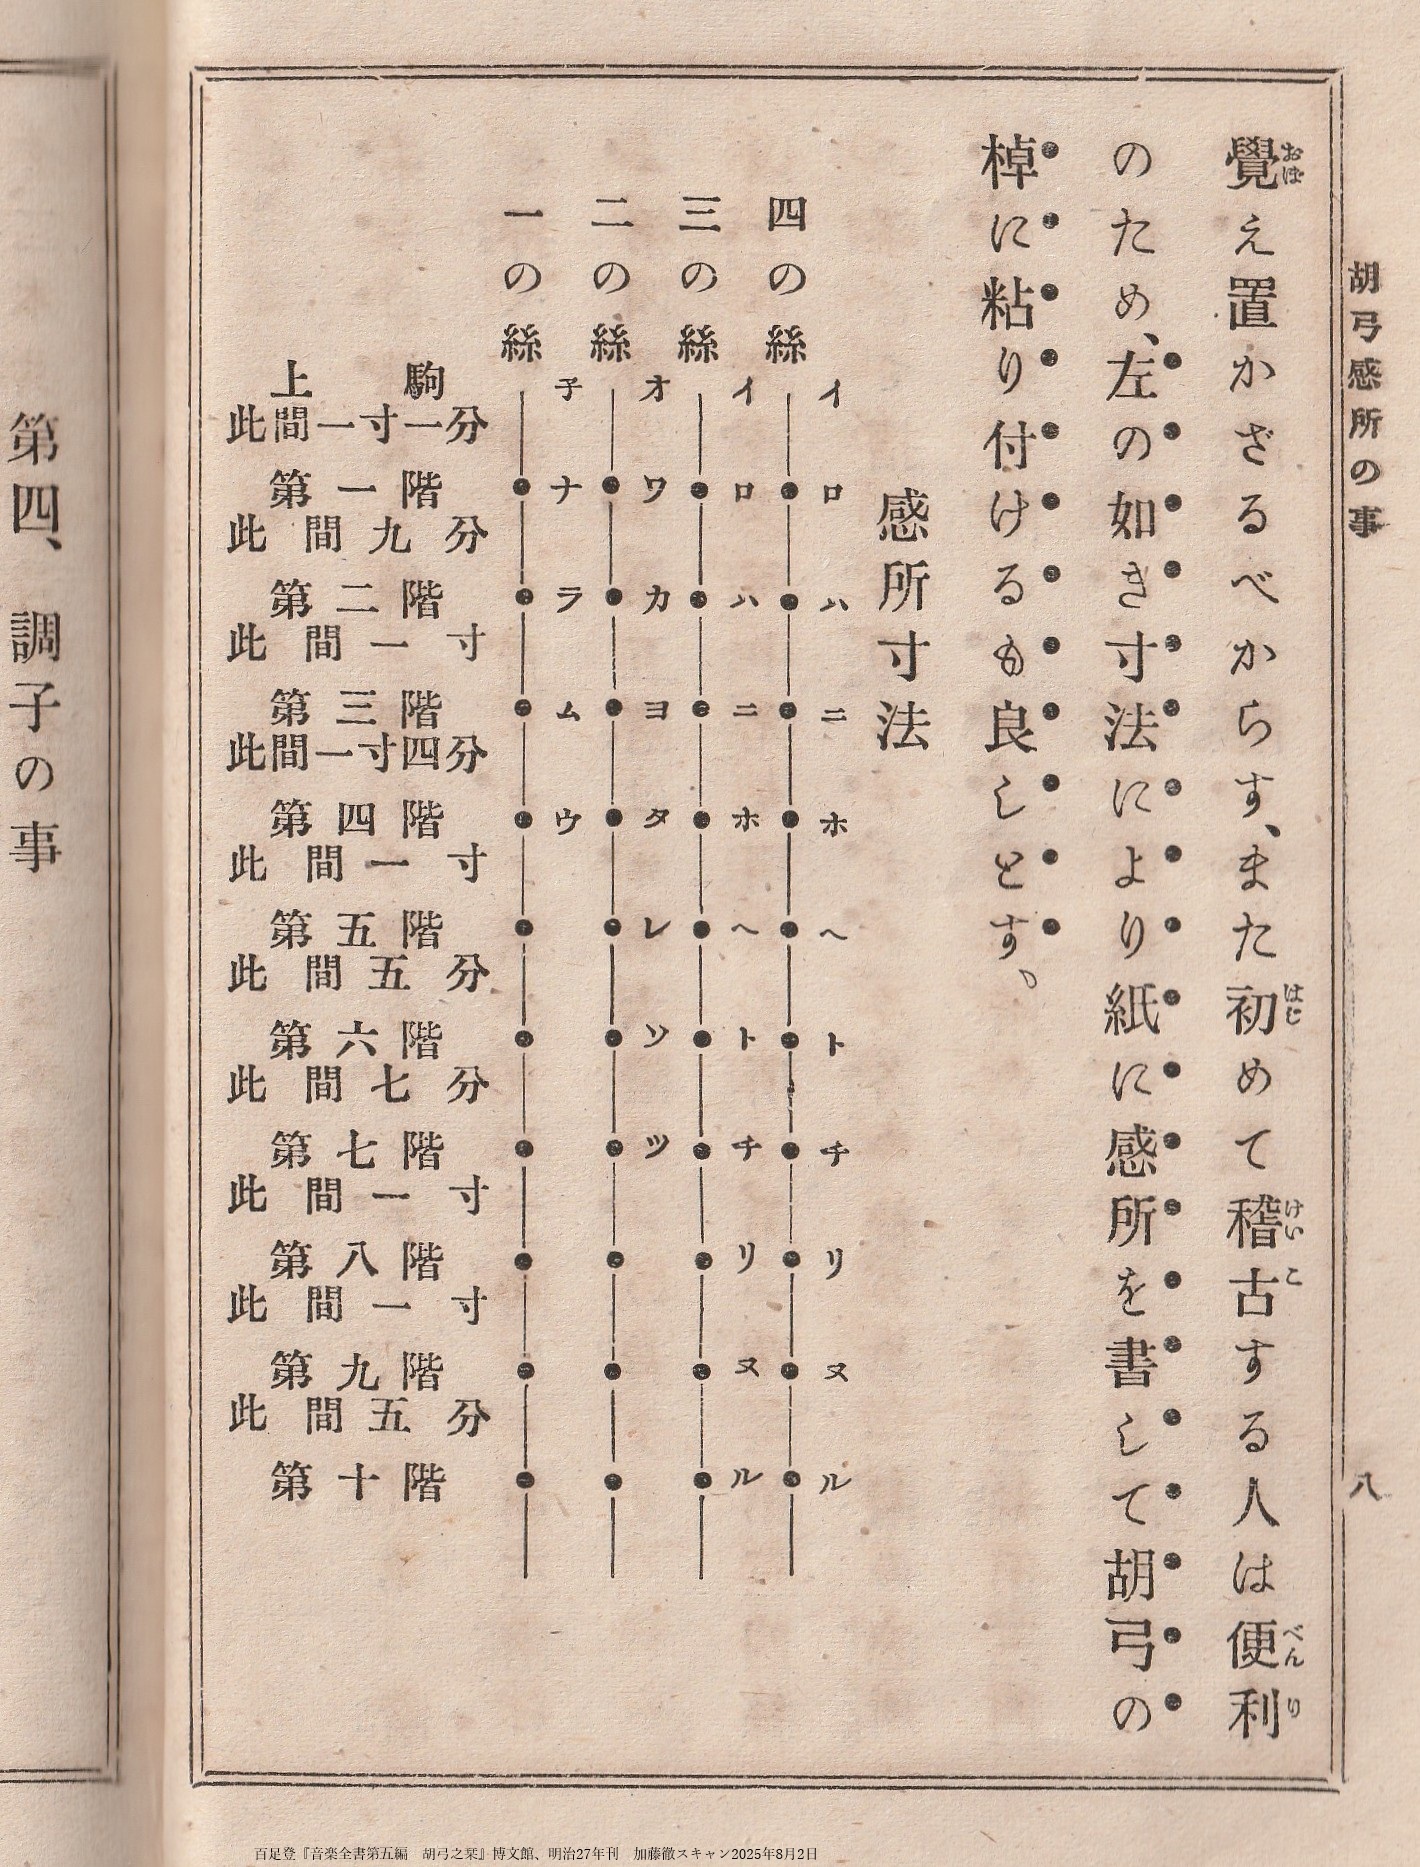 胡弓感所の事
八
覺え置かざるべからす、また初めて稽古する人は便利
おぼ
はじ
けいこ
べんり
のため、左の如き寸法により紙に感所を書して胡弓の
棹に粘り付けるも良しとす。
感所寸法
四の絲 イ ロ ハ ニ ホ ヘ ト チ リ ヌ ル
三の絲 イ ロ ハ ニ ホ ヘ ト チ リ ヌ ル
二の絲 オ ワ カ ヨ タ レ ソ ツ
一の絲 子 ナ ラ ム ウ
上駒
此間一寸一分
第一階
此間九分
第二階
此間一寸
第三階
此間一寸四分
第四階
此間一寸
第五階
此間五分
第六階
此間七分
第七階
此間一寸
第八階
此間一寸
第九階
此間五分
第十階
第四、調子の事
百足登『音楽全書第五編　胡弓之栞』博文館、明治27年刊　加藤徹スキャン2025年8月2日